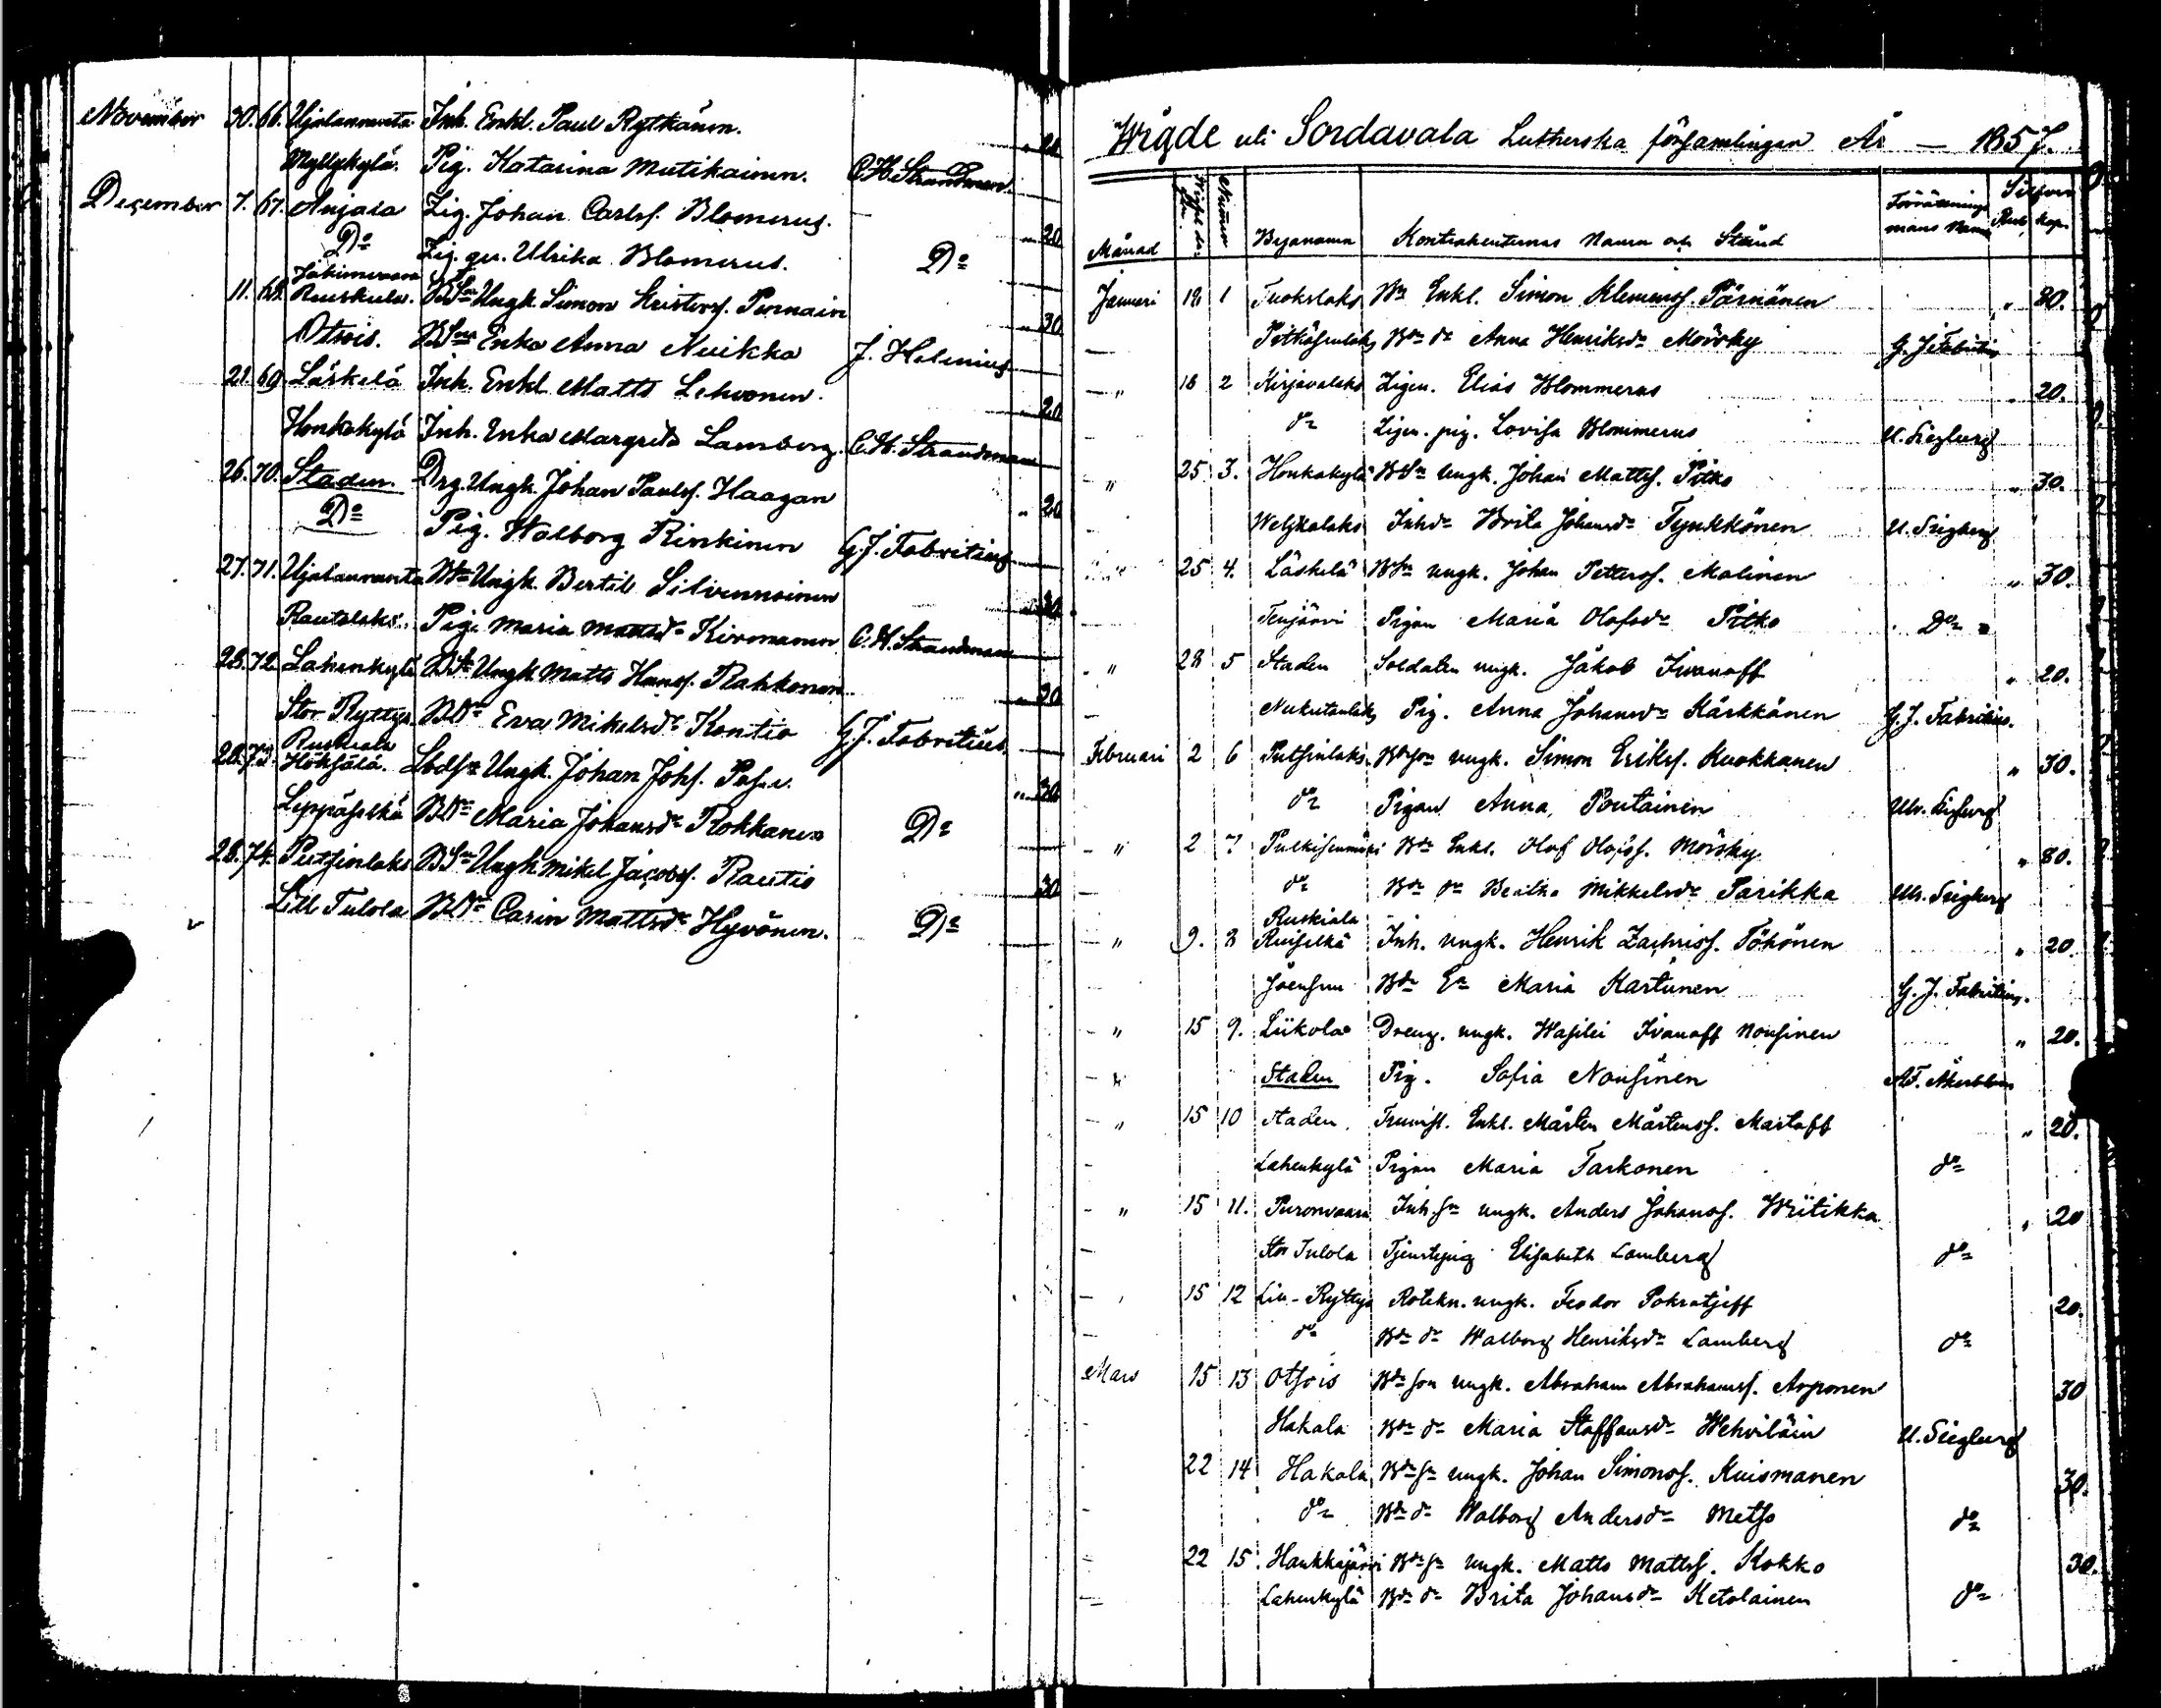 November 30. 66. Ujalanranta Inh. Enkl. Paul Rytkänen. " 20
Myllykylä. Pig. Katarina Mutikainen. C.H. Strandman.
December 7. 67. Anjala Zig. Johan Carlss. Blomerus. " 20
Do Zig. qv. Ulrika Blomerus. Do
11. 68. Jakimvaara
Ruskiala. BSn Ungk. Simon Kristerss. Pernain " 30
Otsois. BDr Enka Anna Nuikka J. Helenius
21. 69 Läskelä Inh. Enkl. Matts Lehvonen. " 20
Honkakylä Inh. Enka Margreta Lamberg. C.H. Strandman
26. 70. Staden. Drg. Ungk. Johan Paulss. Haagan " 20
Do Pig. Walborg Rinkinen G.J. Fabritius
27. 71. Ujalanranta Bn Ungk. Bertil Silvennoinen " 30
Rautalaks. Pig. Maria Mattsdr Kirmanen C.H. Strandman
28. 72. Lahenkylä BSn Ungk. Matts Hanss. Rahkonen " 20
Stor Ryttys. BDr Eva Mikelsdr Kontio G.J. Fabritius
28. 73. Ruskiala
Höksälä. Ungk. Johan Johs. " 30
Leppäselkä BDr Maria Johansdr Rokkanen Do
28. 74. Putsinlaks BSn Ungk Mikel Jacobss. Rautio 30
Lill Tulola BDr Carin Mattsdr Hyvönen. Do
Wigde uti Sordavala Lutherska församlingen År — 1857.
Månad Nummer Byanamn Kontrahenternas Namn och Stånd Förrättningsmans Namn Silfver Rub. kop.
Januari 18 1 Tuokslaks Bn Enkl. Simon Klemenss. Pärnänen " 30.
Pitkäsenlaks Bn dr Anna Henriksdr Mörsky G.J. Fabritius
" 18 2 Kirjavalaks Zigen. Elias Blommerus " 20.
do Zigen. pig. Lovisa Blommerus U. Siegberg
" 25 3. Honkakylä BSn Ungk. Johan Mattss. Pitko " 30.
Inhdr Brita Johansdr Tynkkönen U. Siegberg
" 25 4. Läskelä BSn ungk. Johan Petterss. Malinen " 30.
Tenjärvi Pigan Maria Olofsdr Pitko Do
" 28 5 Staden Soldaten ungk. Jakob Iwanoff " 20.
Pig. Anna Johansdr Kärkkänen G.J. Fabritius.
Februari 2 6 Putsinlaks Bdeson ungk. Simon Erikss. Kuokkanen " 30.
do Pigan Anna Poutainen Ulr. Siegberg
" 2 7 Bn Enkl. Olof Olofss. Mörsky " 80.
do Bn dr Beatha Mikkelsdr Parikka Ulr. Siegberg
" 9. 8 Ruskiala
Ruiselkä Inh. ungk. Henrik Zachriss. Töhönen " 20.
Joensuu Bde Ea Maria Kartunen G.J. Fabritius.
" 15 9. Liikola Dreng. ungk. Wasilei Ivanoff Nousinen " 20.
Staden Pig. Sofia Nousinen A.F. Åkerblom
" 15 10 Staden. Enkl. Mårten Mårtenss. Martoff " 20.
Lahenkylä Pigan Maria Tarkonen do
" 15 11. Puronvaara Inh. sn ungk. Anders Johanss. Wiitikka " 20
Stor Tulola Tjenstepig Elisabeth Lamberg do
" 15 12 Lill-Ryttys Rotekn. ungk. Feodor Pokratjeff 20.
do Bde dr Walborg Henriksdr Lamberg do
Mars 15 13 Otsois Bde son ungk. Abraham Abrahamss. Arponen 30
Hakala Bde dr Maria Staffansdr Wehviläin U. Siegberg
22 14 Hakala Bde sn ungk. Johan Simonss. Kuismanen 30.
do Bde dr Walborg Andersdr Metso do
22 15. Haukkajärvi Bde sn ungk. Matts Mattss. Kokko 30.
Lahenkylä Bde dr Brita Johansdr Ketolainen do